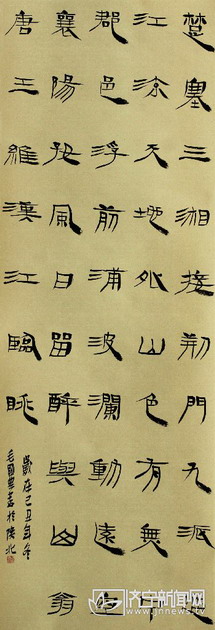 楚塞三湘接荆門九派通
江流天地外山色有無中
郡邑浮前浦波瀾動遠空
襄陽好風日留醉與山翁
唐王維漢江臨眺
歲在己丑年冬
毛國書於北
济宁新闻网
www.jnnews.tv